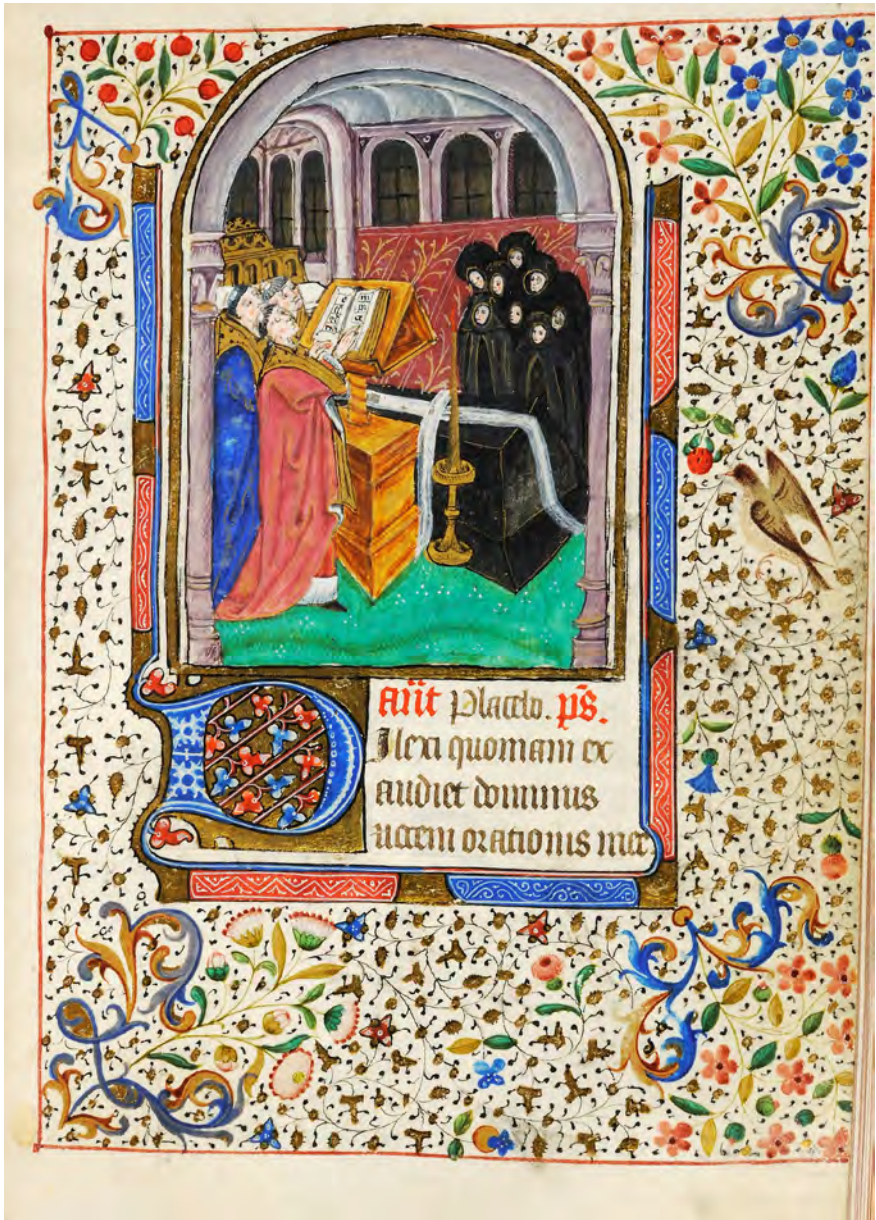 Añt Placebo. p̄s.
Dilexi quoniam ex
audiet dominus
uocem orationis mee